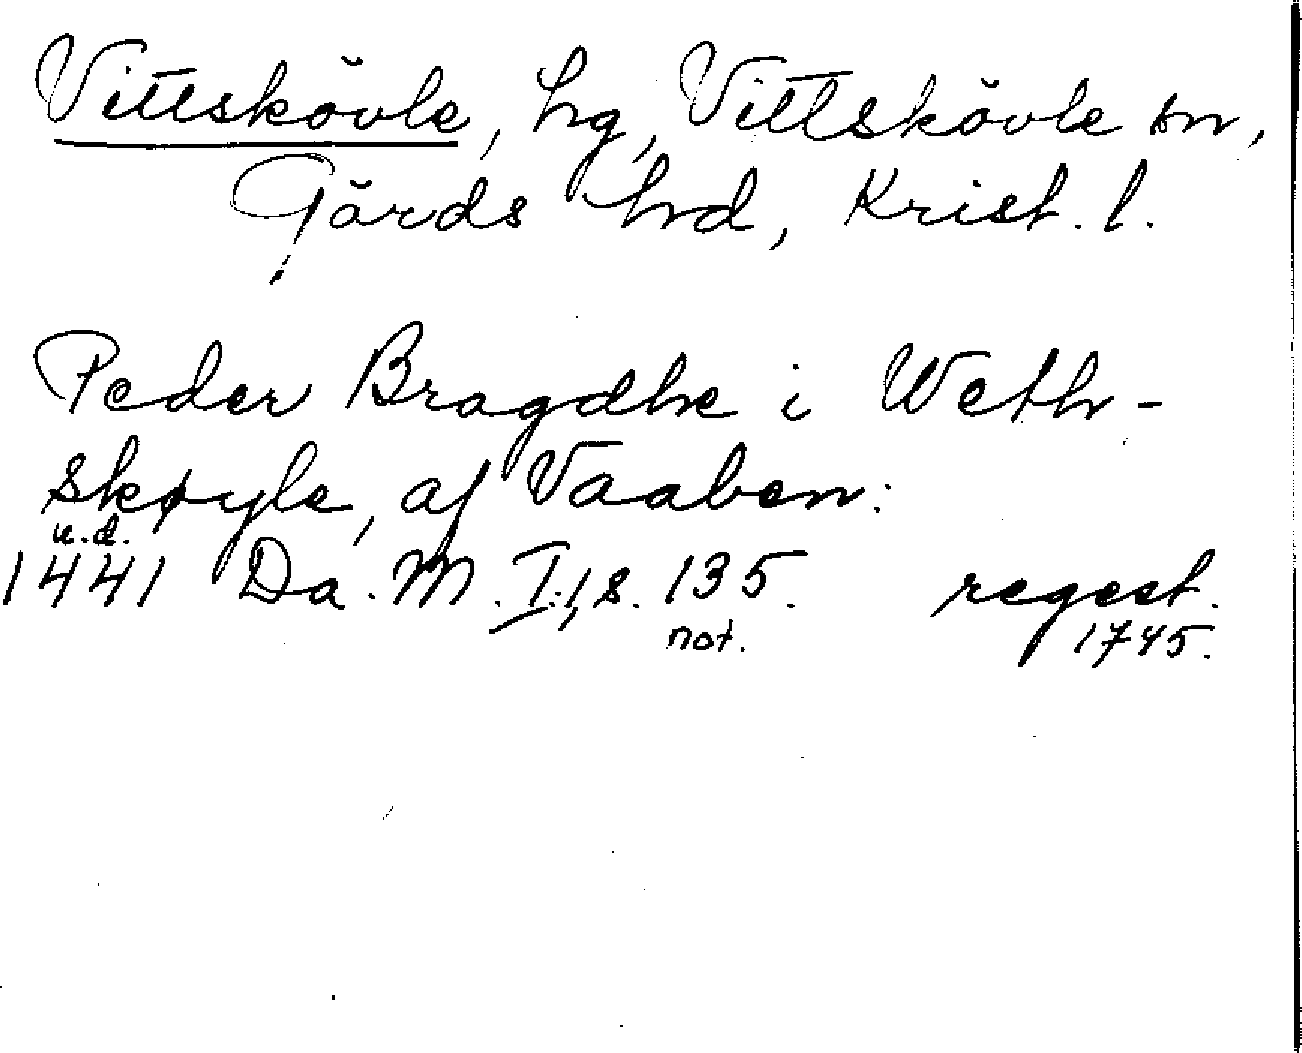 Vittskövle, hg, Vittskövle sn,
Gärds hrd, Krist. l.
Peder Bragdhe i Weth-
skøyle, af Vaaben:
u.d.
1441 Da. M. I:1, s. 135. regest.
not. 1745.